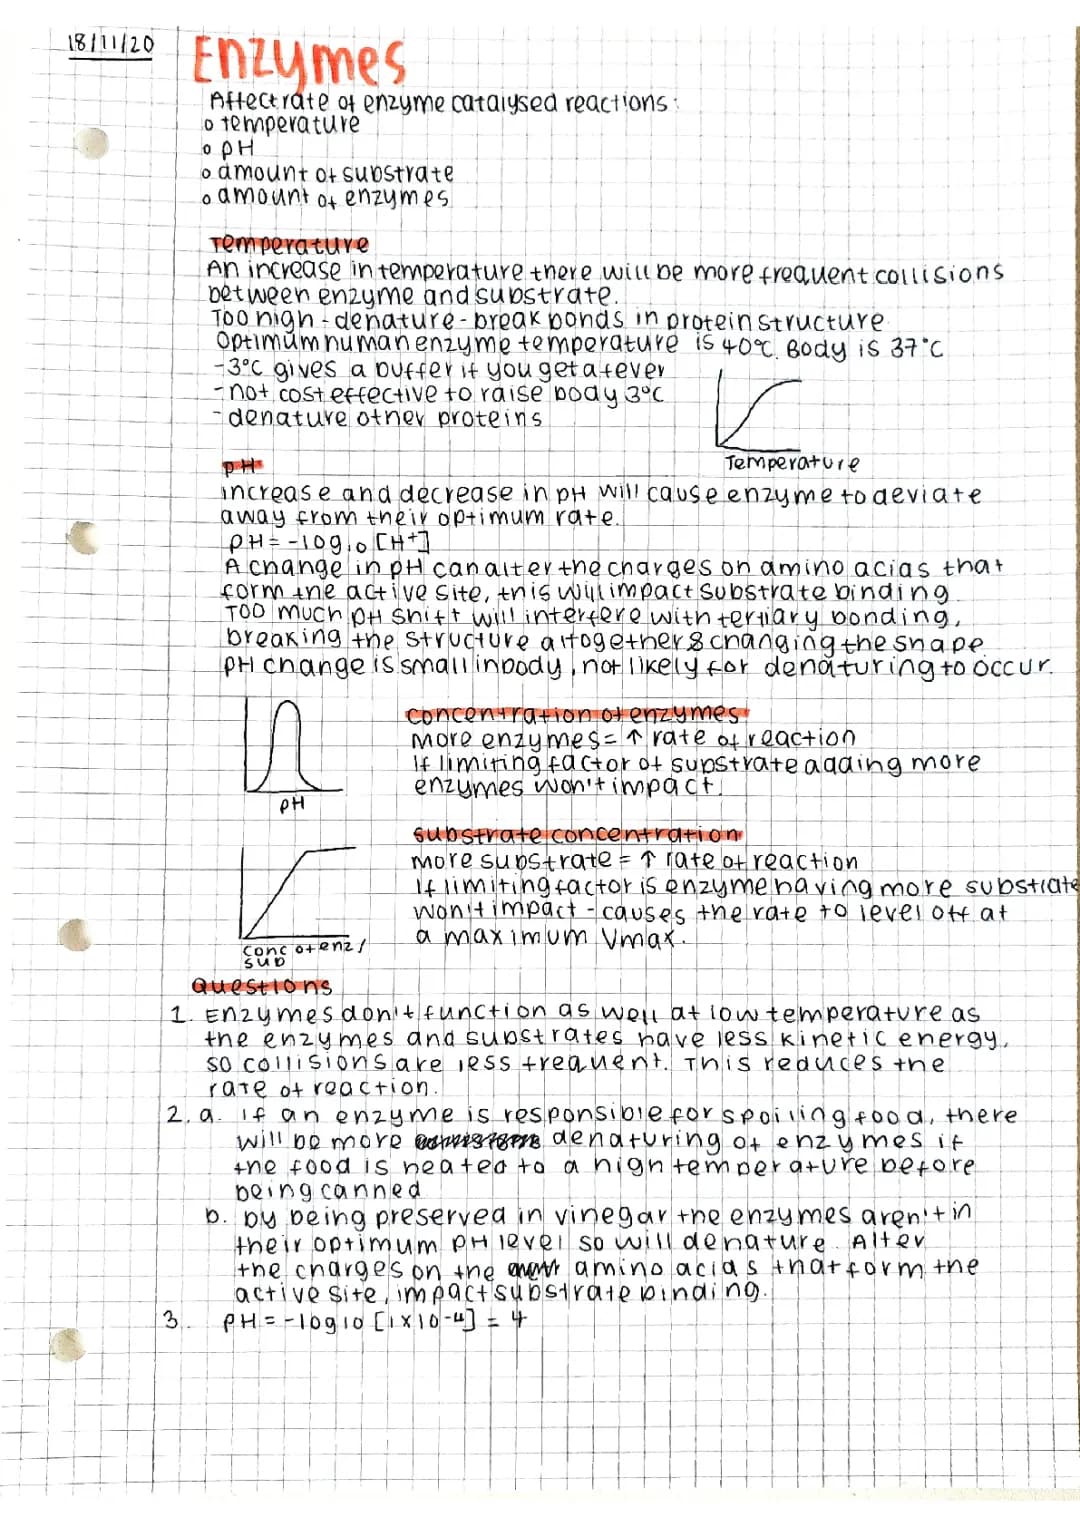 18/11/20
Enzymes
Affect rate of enzyme catalysed reactions:
o temperature
o pH
o amount of substrate
o amount of enzymes
Temperature
An increase in temperature there will be more frequent collisions
between enzyme and substrate.
Too high - denature - break bonds in protein structure
Optimum human enzyme temperature is 40°C. Body is 37°C
-3°C gives a buffer if you get a fever
- not cost effective to raise body 3°C
- denature other proteins
Temperature
pH
increase and decrease in pH will cause enzyme to deviate
away from their optimum rate.
pH = -log10 [H+]
A change in pH can alter the charges on amino acids that
form the active site, this will impact substrate binding
Too much pH shift will interfere with tertiary bonding,
breaking the structure altogether & changing the shape
pH change is small in body, not likely for denaturing to occur.
pH
concentration of enzymes
More enzymes = ↑ rate of reaction
If limiting factor of substrate adding more
enzymes won't impact.
substrate concentration
more substrate = ↑ rate of reaction
If limiting factor is enzyme having more substrate
won't impact - causes the rate to level off at
a maximum Vmax.
conc of enz/
sub
Questions
1. Enzymes don't function as well at low temperature as
the enzymes and substrates have less kinetic energy,
so collisions are less frequent. This reduces the
rate of reaction.
2. a. if an enzyme is responsible for spoiling food, there
will be more denaturing of enzymes if
the food is heated to a high temperature before
being canned
b. by being preserved in vinegar the enzymes aren't in
their optimum pH level so will denature. Alter
the charges on the amino acids that form the
active site, impact substrate binding.
3. pH = -log10 [1x10-4] = 4